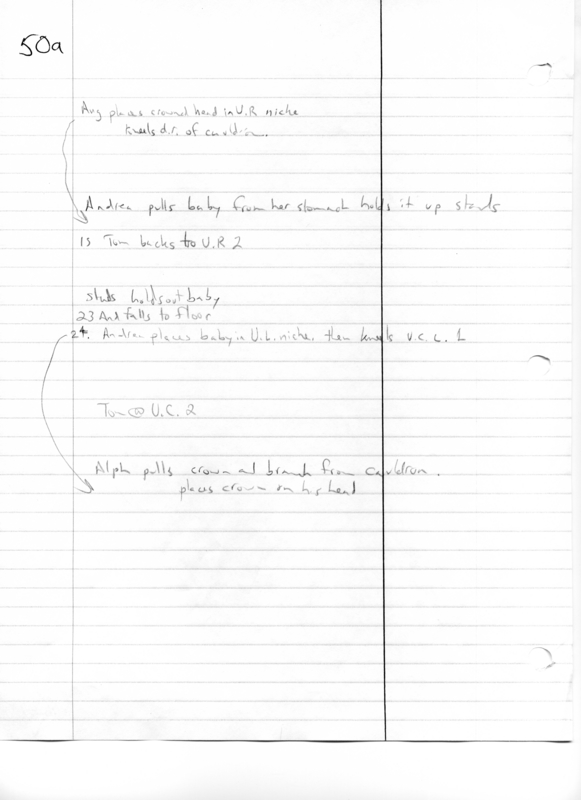 50a
Aug places crowned head in U.R niche
kneels d.r. of cauldron.
Andrea pulls baby from her stomach holds it up stands
15 Tom backs to U.R 2
stands holds out baby
23 And falls to floor
24. Andrea places baby in U.L. niche. then kneels U.C. L. 1
Tom @ U.C. 2
Alph pulls crown and branch from cauldron.
places crown on his head